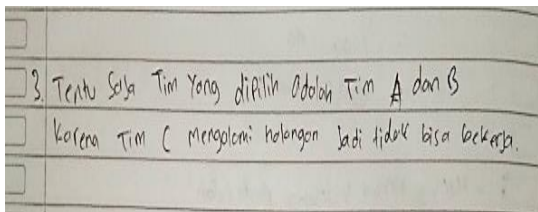 3. Tentu Saja Tim Yang dipilih Adalah Tim A dan B
Karena Tim C mengalami halangan Jadi tidak bisa bekerja.